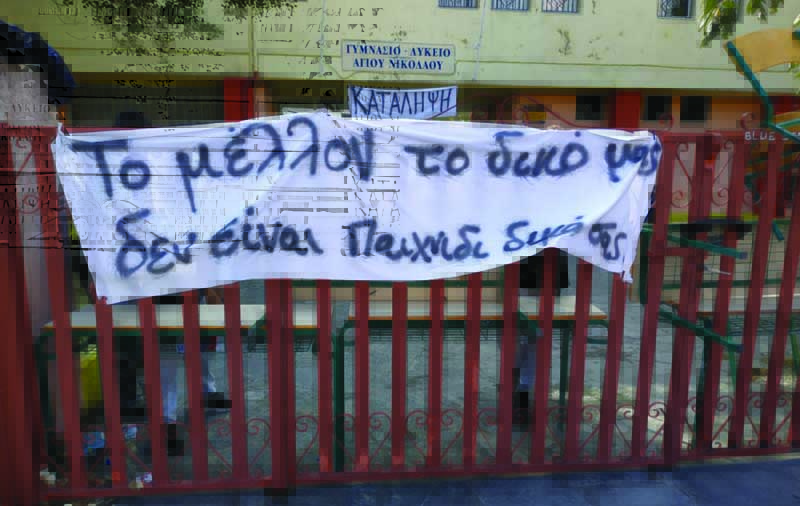 ΓΥΜΝΑΣΙΟ - ΛΥΚΕΙΟ
ΑΓΙΟΥ ΝΙΚΟΛΑΟΥ
ΚΑΤΑΛΗΨΗ
Το μέλλον το δικό μας
δεν είναι Παιχνίδι δικό σας
BLUE